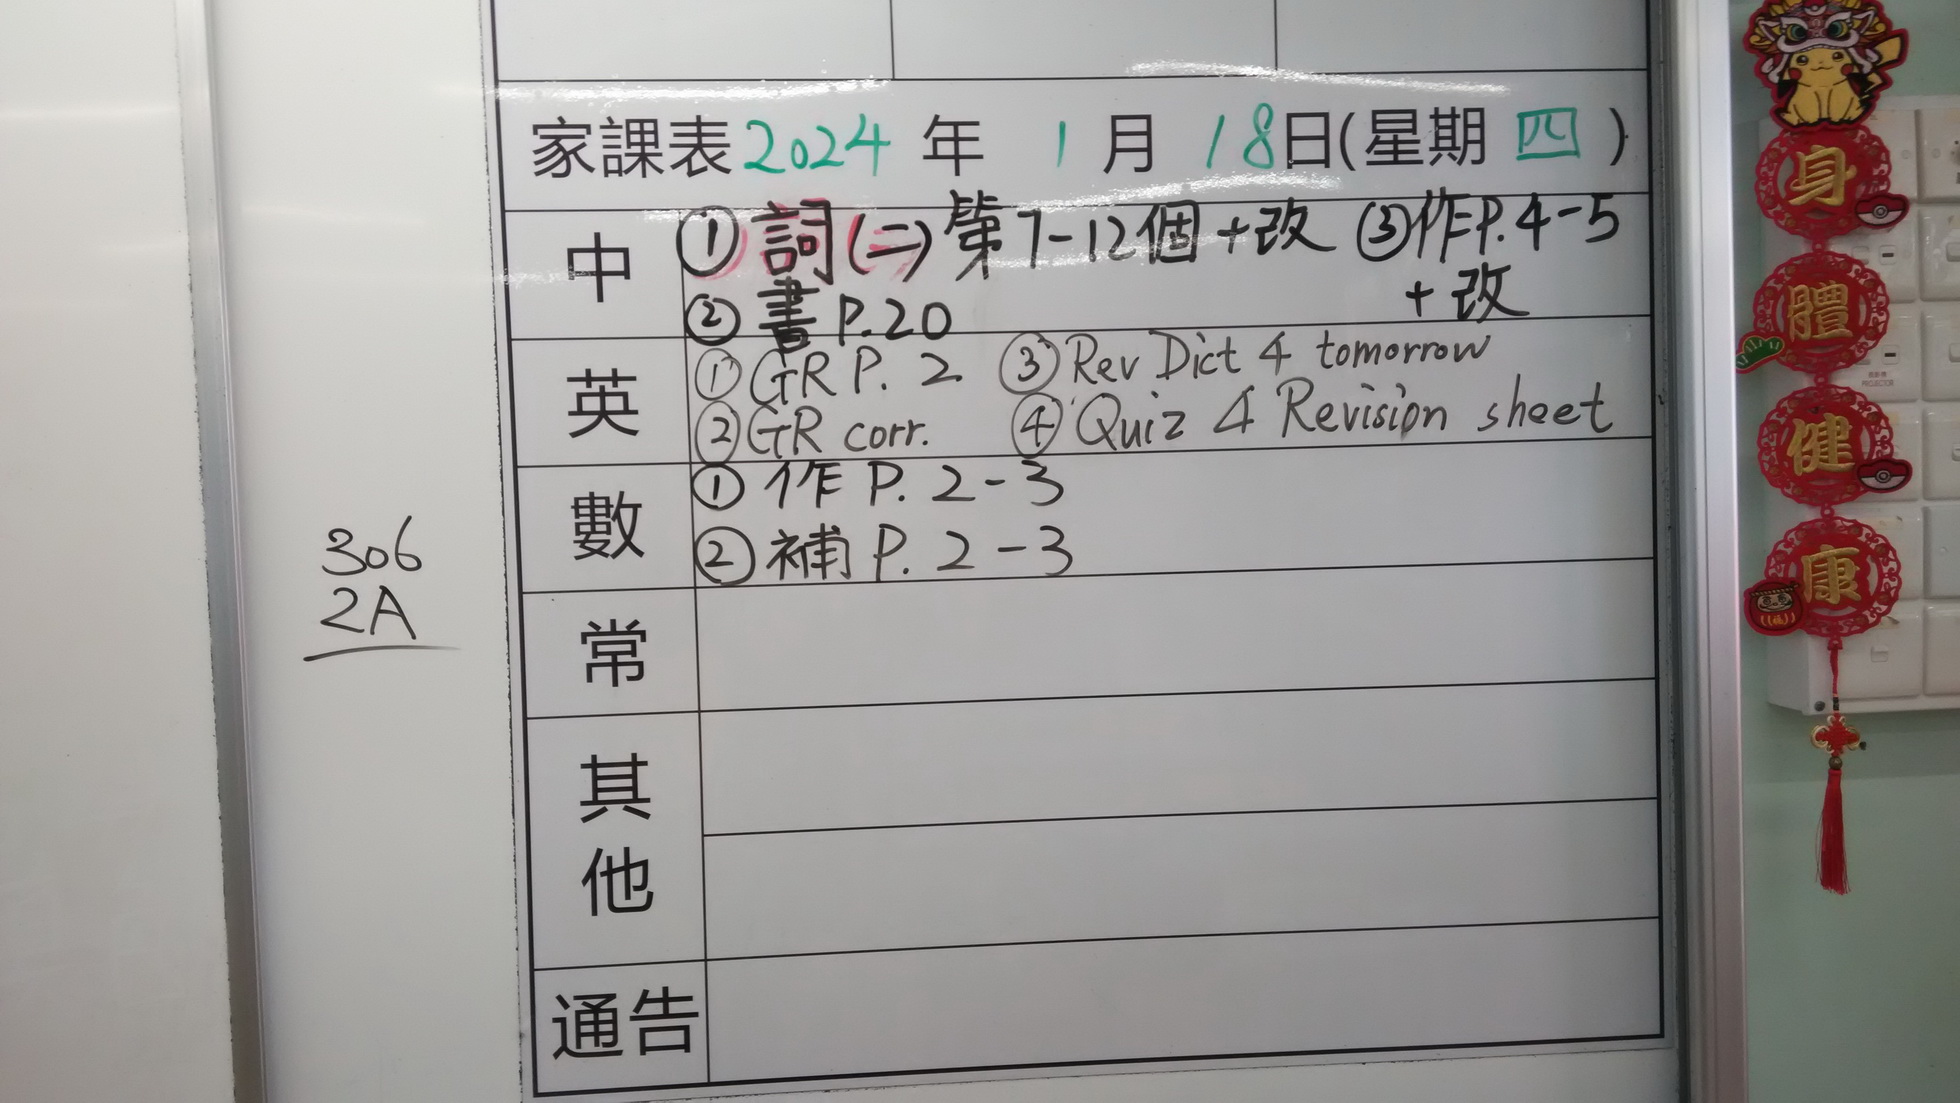 家課表2024年 1月 18日(星期四)
中
① 詞(二)第7-12個+改 ③作P.4-5
+改
② 書P.20
英
① GR P. 2 ③ Rev Dict 4 tomorrow
② GR corr. ④ Quiz 4 Revision sheet
數
① 作 P. 2-3
② 補 P. 2-3
常
其他
通告
306
2A
身
體
健
康
PROJECTOR